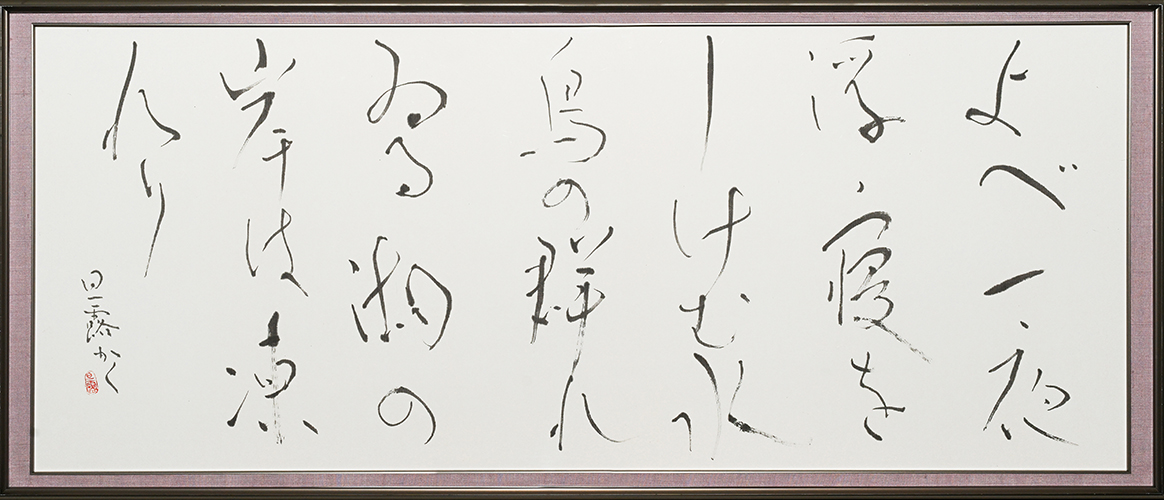 よべ一夜
浮寝を
しけむ水
鳥の群れ
ゐる湖の
岸は凍
れり
かく